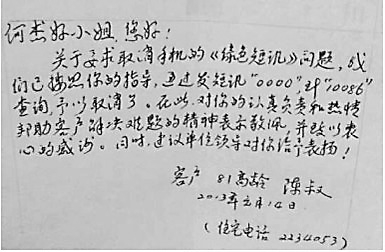 何杰好小姐,您好!
关于要求取消手机的《绿色短讯》问题,我
们已按照你的指导,通过发短讯"0000",到"10086"
查询,予以取消了。在此,对你的认真负责和热情
帮助客户解决难题的精神表示敬佩,并致以衷
心的感谢。同时,建议单位领导对你给予表扬!
客户 81高龄 陈叔
2013年元月14日
(住宅电话 2234053)